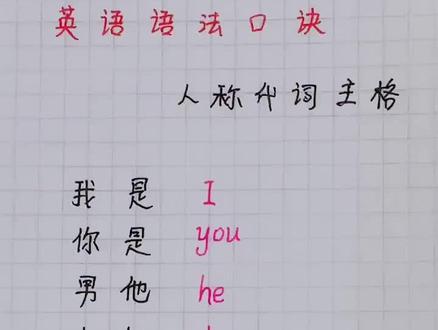 英语语法口诀
人称代词主格
我是 I
你是 you
男他 he